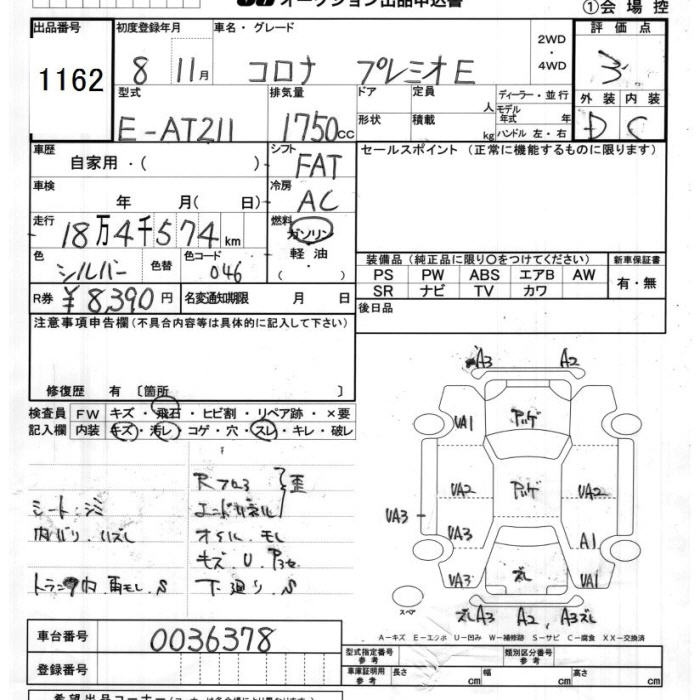 オークション出品申込書
①会場控
出品番号 初度登録年月 車名・グレード 2WD・4WD 評価点
1162 8 11月 コロナ プレミオE 3
型式 排気量 ドア 定員 人 ディーラー・並行 外装 内装
E-AT211 1750cc 形状 積載 kg モデル年式 年 ハンドル 左・右 D C
車歴 自家用・( ) シフト FAT セールスポイント(正常に機能するものに限ります)
車検 年 月( 日) 冷房 AC
走行 18万4千574km 燃料 ガソリン・軽油・( )
色 シルバー 色替 色コード 046
装備品(純正品に限り○をつけてください) 新車保証書
PS PW ABS エアB AW 有・無
SR ナビ TV カワ
R券 ¥8,390円 名変通知期限 月 日 後日品
注意事項申告欄(不具合内容等は具体的に記入して下さい)
修復歴 有〔箇所 〕
検査員 FW キズ・飛石・ヒビ割・リペア跡・×要
記入欄 内装 キズ・汚レ・コゲ・穴・スレ・キレ・破レ
シート.シミ
オイル.モレ
キズ.U.
トランク内.雨モレ.S 下廻り.S
A3 A2
UA1
UA2 UA2
UA3
UA3 A1
UA3 UA1
スペア
A3 A2. A3
A-キズ E-エクボ U-凹み W-補修跡 S-サビ C-腐食 XX-交換済
車台番号 0036378
登録番号
型式指定番号 参考 類別区分番号 参考
車庫証明用 参考 長さ cm 幅 cm 高さ cm